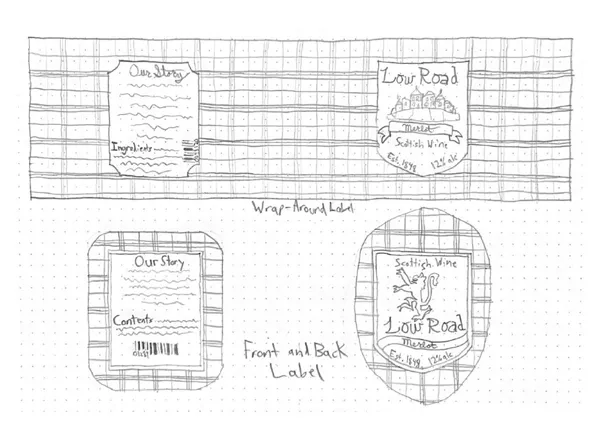 Our Story
Ingredients
Low Road
Merlot
Scottish Wine
Est. 1898
12% alc
Wrap-Around Label
Our Story
Contents
Scottish Wine
Low Road
Merlot
Est. 1898
12% alc
Front and Back
Label